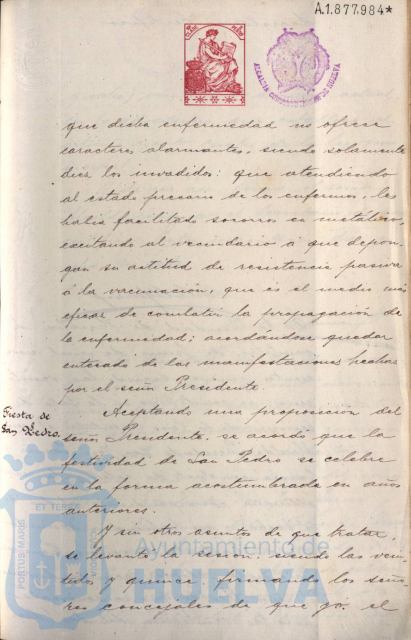 A.1.877.984*
ALCALDIA CONSTITUCIONAL DE HUELVA
que dicha enfermedad no ofrece
caracteres alarmantes, siendo solamente
diez los invadidos: que atendiendo
al estado precario de los enfermos, les
habia facilitado socorros en metálico,
excitando al vecindario á que depon-
gan su actitud de resistencia pasiva
á la vacunación, que es el medio más
eficaz de combatir la propagación de
la enfermedad; acordándose quedar
enterado de las manifestaciones hechas
por el señor Presidente.
Fiesta de
San Pedro.
Aceptando una proposición del
señor Presidente, se acordó que la
festividad de San Pedro se celebre
en la forma acostumbrada en años
anteriores.
Y sin otros asuntos de que tratar,
se levantó la sesión, siendo las vein-
tidos y quince, firmando los seño-
res concejales de que yó, el
PORTUS MARIS ET TERRE
Ayuntamiento de
HUELVA